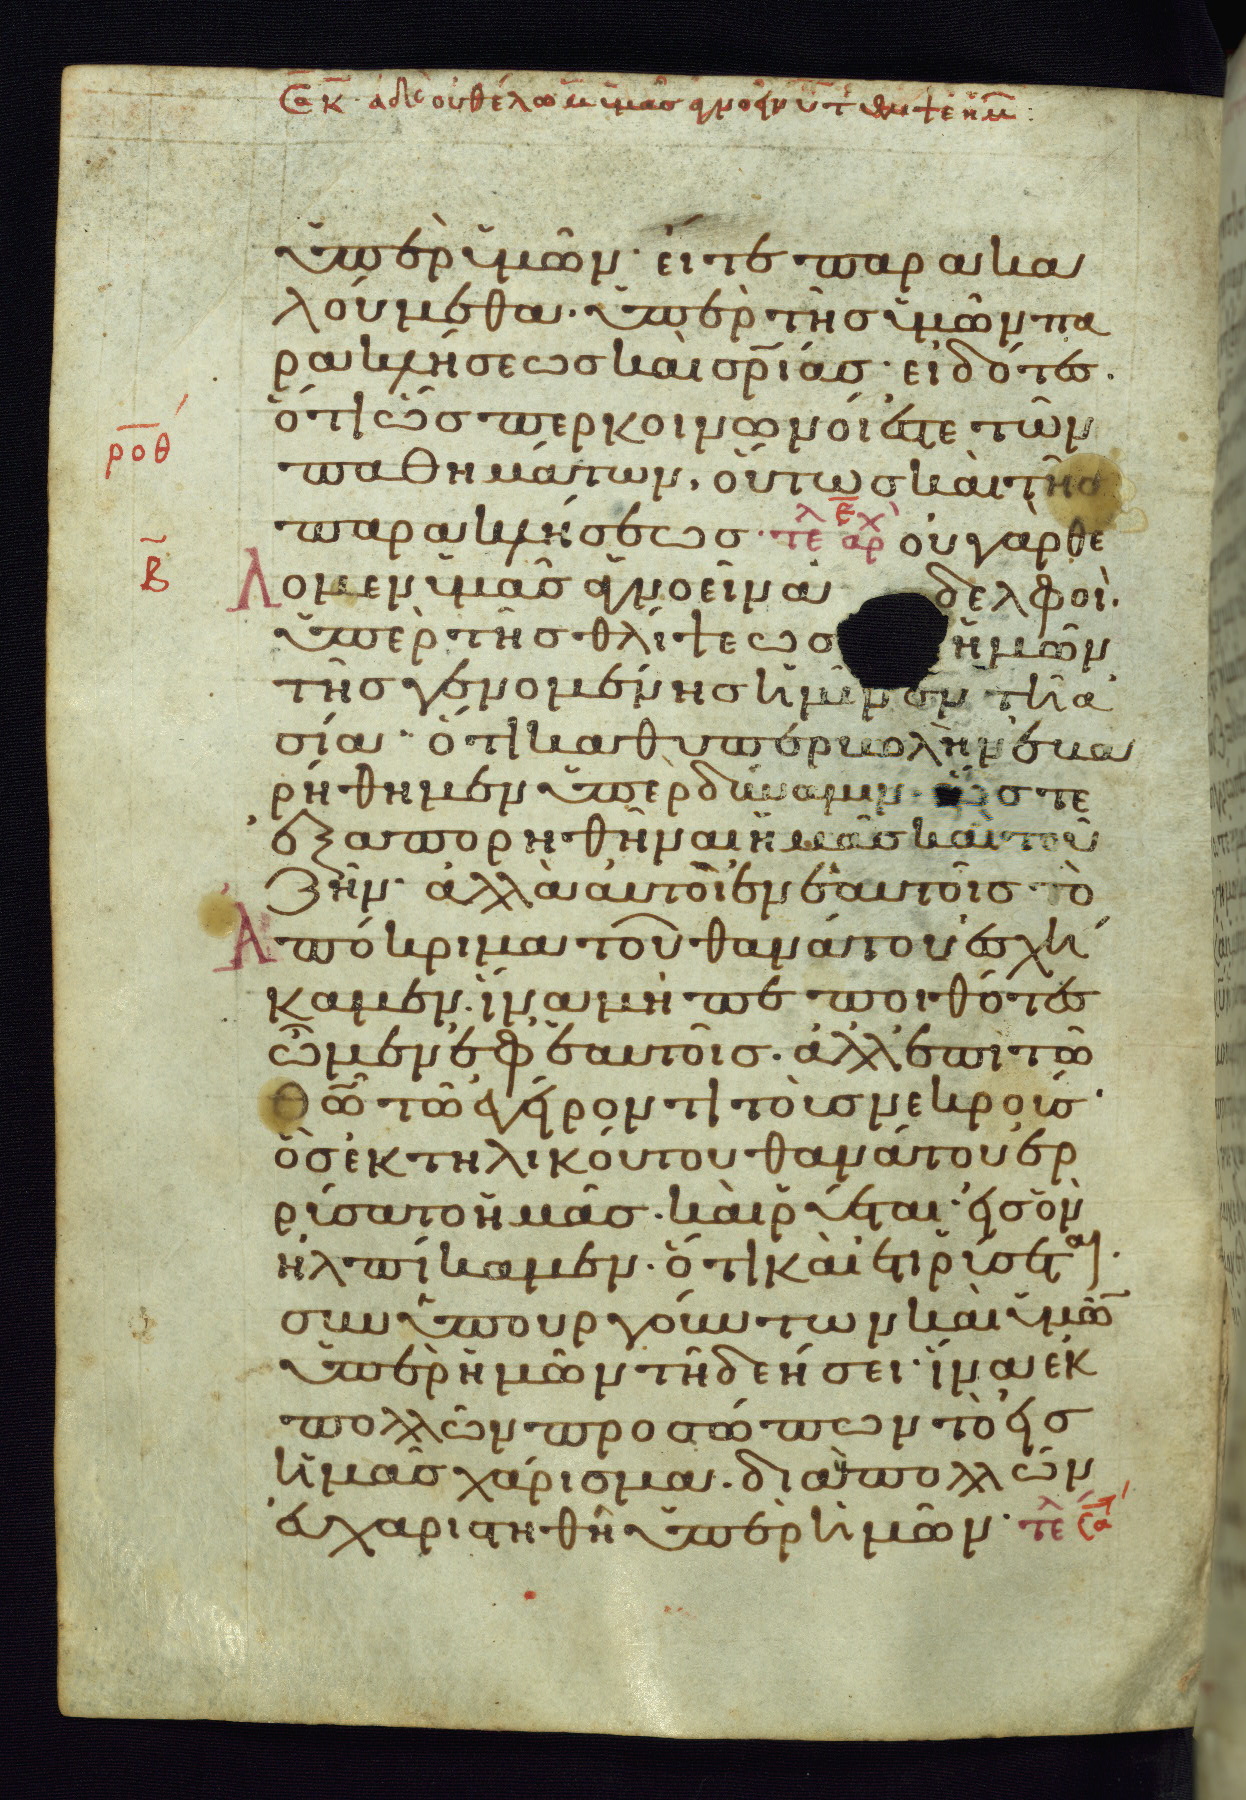 ὑπὲρ ὑμῶν· εἴτε παρακα
λούμεθα· ὑπὲρ τῆς ὑμῶν πα
ρακλήσεως καὶ σρ̅ίας· εἰδότες·
ὅτι ὥσπερ κοινωνοί ἐστε τῶν
ροθ
παθημάτων, οὕτως καὶ τῆς
παρακλήσεως· τελ αρχ οὐ γὰρ θέ
Β
λομεν ὑμᾶς ἀγνοεῖν ἀδελφοί·
ὑπὲρ τῆς θλίψεως ἡμῶν
τῆς γενομένης ἡμῖν ἐν τῇ ἀ
σίᾳ· ὅτι καθ ὑπερβολὴν ἐβα
ρήθημεν ὑπὲρ δύναμιν· ὥστε
ἐξαπορηθῆναι ἡμᾶς καὶ τοῦ
ζῆν· ἀλλὰ αὐτοὶ ἐν ἑαυτοῖς τὸ
ἀπόκριμα τοῦ θανάτου ἐσχή
καμεν· ἵνα μὴ πεποιθότες
ὦμεν ἐφ ἑαυτοῖς· ἀλλ ἐπὶ τῷ
θω̅ τῷ ἐγείροντι τοὺς νεκρούς·
ὃς ἐκ τηλικούτου θανάτου ἐρ
ρύσατο ἡμᾶς· καὶ ῥύεται· εἰς ὃν
ἠλπίκαμεν· ὅτι καὶ ἔτι ῥύσεται·
συνυπουργούντων καὶ ὑμῶ̅
ὑπὲρ ἡμῶν τῇ δεήσει· ἵνα ἐκ
πολλῶν προσώπων τὸ εἰς
ἡμᾶς χάρισμα· διὰ πολλῶν
εὐχαριστηθῇ ὑπὲρ ἡμῶν· τελ